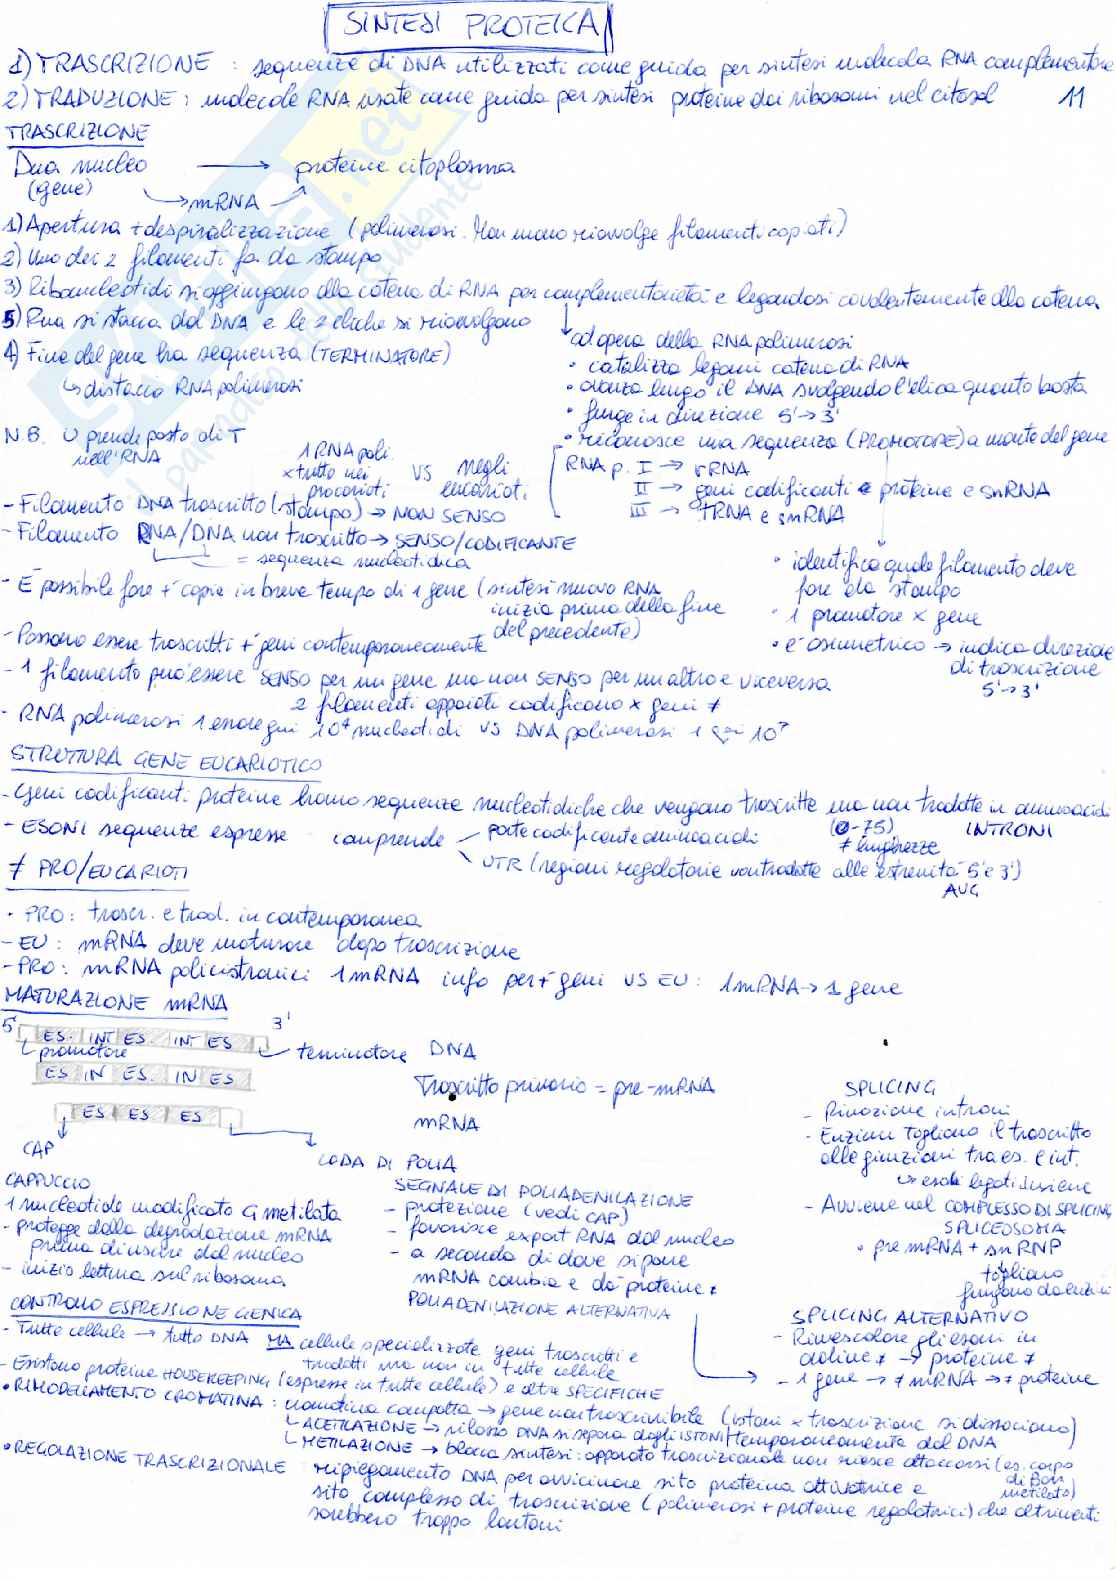 SINTESI PROTEICA
1) TRASCRIZIONE : sequenze di DNA utilizzati come guida per sintesi molecola RNA complementare
2) TRADUZIONE : molecole RNA usate come guida per sintesi proteine dai ribosomi nel citosol 11
TRASCRIZIONE
Dna nucleo → proteine citoplasma
(gene) → mRNA
1) Apertura + despiralizzazione (polimerasi. Man mano riavvolge filamenti copiati)
2) Uno dei 2 filamenti fa da stampo
3) Ribonucleotidi si aggiungono alla catena di RNA per complementarietà e legandosi covalentemente alla catena
5) Rna si stacca dal DNA e le 2 eliche si riavvolgono
4) Fine del gene ha sequenza (TERMINATORE)
↳ distacco RNA polimerasi
ad opera della RNA polimerasi
• catalizza legami catena di RNA
• avanza lungo il DNA svolgendo l'elica quanto basta
• funge in direzione 5'→3'
• riconosce una sequenza (PROMOTORE) a monte del gene
N.B. U prende posto di T
nell'RNA
1 RNA poli.
x tutto nei
procarioti
VS negli
eucarioti
RNA p. I → rRNA
II → geni codificanti proteine e snRNA
III → tRNA e snRNA
- Filamento DNA trascritto (stampo) → NON SENSO
- Filamento RNA/DNA non trascritto → SENSO/CODIFICANTE
= sequenza nucleotidica
• identifica quale filamento deve
fare da stampo
• 1 promotore x gene
• è asimmetrico → indica direzione
di trascrizione
5'→3'
- È possibile fare + copie in breve tempo di 1 gene (sintesi nuovo RNA
inizia prima della fine
del precedente)
- Possono essere trascritti + geni contemporaneamente
- 1 filamento può essere SENSO per un gene ma non SENSO per un altro e viceversa
2 filamenti appaiati codificano x geni ≠
- RNA polimerasi 1 errore ogni 10⁴ nucleotidi VS DNA polimerasi 1 ogni 10⁷
STRUTTURA GENE EUCARIOTICO
- Geni codificanti proteine hanno sequenze nucleotidiche che vengono trascritte ma non tradotte in amminoacidi
(0-75) INTRONI
≠ lunghezze
- ESONI sequenze espresse comprende parte codificante amminoacidi
UTR (regioni regolatorie non tradotte alle estremità 5' e 3')
AUG
≠ PRO/EUCARIOTI
• PRO: trascr. e trad. in contemporanea
- EU: mRNA deve maturare dopo trascrizione
- PRO: mRNA policistronici 1 mRNA info per + geni VS EU: 1 mRNA → 1 gene
MATURAZIONE mRNA
5' 3'
ES. INT ES. INT ES
promotore terminatore DNA
ES IN ES. IN ES
Trascritto primario = pre-mRNA
ES ES ES
mRNA
CAP
CODA DI POLIA
CAPPUCCIO
1 nucleotide modificato G metilata
- protegge dalla degradazione mRNA
prima di uscire dal nucleo
- inizio lettura sul ribosoma
SEGNALE DI POLIADENILAZIONE
- protezione (vedi CAP)
- favorisce export RNA dal nucleo
- a seconda di dove si pone
mRNA cambia e dà proteine ≠
POLIADENILAZIONE ALTERNATIVA
SPLICING
- Rimozione introni
- Enzimi tagliano il trascritto
alle giunzioni tra es. e int.
↳ esoni legati insieme
- Avviene nel COMPLESSO DI SPLICING
SPLICEOSOMA
• pre mRNA + snRNP
tagliano
fungono da enzimi
SPLICING ALTERNATIVO
- Rimescolare gli esoni in
ordine ≠ → proteine ≠
- 1 gene → ≠ mRNA → ≠ proteine
CONTROLLO ESPRESSIONE GENICA
- Tutte cellule → tutto DNA MA cellule specializzate geni trascritti e
tradotti ma non in tutte cellule
- Esistono proteine HOUSEKEEPING (espresse in tutte cellule) e altre SPECIFICHE
• RIMODELLAMENTO CROMATINA : cromatina compatta → gene non trascrivibile (istoni x trascrizione si dissociano)
↳ ACETILAZIONE → rilasso DNA si separa dagli ISTONI / temporaneamente dal DNA
↳ METILAZIONE → blocca sintesi: apparato trascrizionale non riesce attaccarsi (es. corpo
di Barr
metilato)
• REGOLAZIONE TRASCRIZIONALE ripiegamento DNA per avvicinare sito proteina attivatrice e
sito complesso di trascrizione (polimerasi + proteine regolatrici) che altrimenti
sarebbero troppo lontani